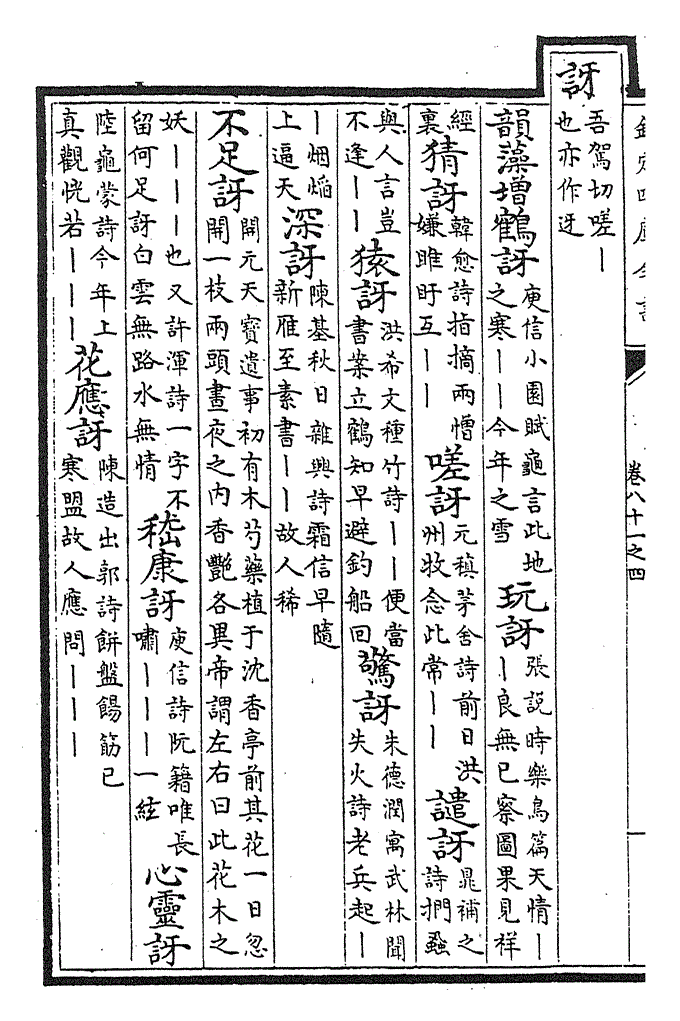 欽定四庫全書
卷八十一之四
訝 吾駕切嗟丨也亦作迓
韻藻增鶴訝 庾信小園賦龜言此地之寒丨丨今年之雪 玩訝 張説時樂鳥篇天情丨丨良無已察圖果見祥
經裏 猜訝 韓愈詩指摘兩憎嫌睢盱互丨丨 嗟訝 元稹茅舍詩前日洪州牧念此常丨丨 譴訝 晁補之詩捫蝨
與人言豈不逢丨丨 猿訝 洪希文種竹詩丨丨便當書案立鶴知早避釣船回 驚訝 朱德潤寓武林聞失火詩老兵起丨
丨烟熖上逼天 深訝 陳基秋日雜興詩霜信早隨新雁至素書丨丨故人稀
不足訝 開元天寶遺事初有木芍藥植于沈香亭前其花一日忽開一枝兩頭晝夜之内香艷各異帝謂左右曰此花木之
妖丨丨丨也又許渾詩一字不留何足訝白雲無路水無情 嵇康訝 庾信詩阮籍唯長嘯丨丨丨一絃 心靈訝
陸龜蒙詩今年上真觀恍若丨丨丨 花應訝 陳造出郭詩餅盤餳筯已寒盟故人應問丨丨丨